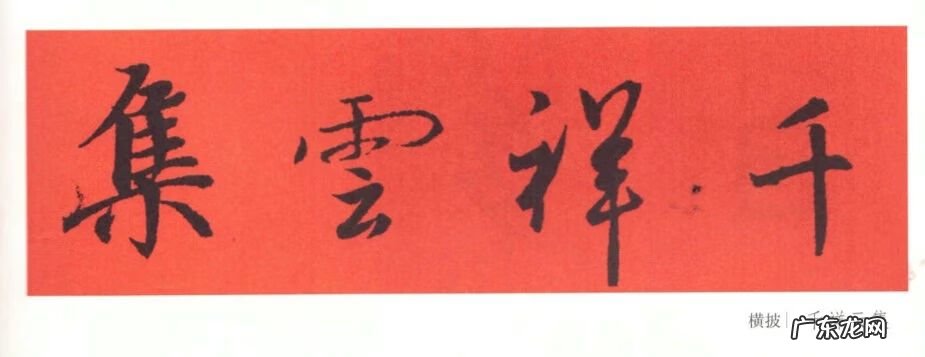 千祥雲集
横披 | 千祥云集
广东龙网